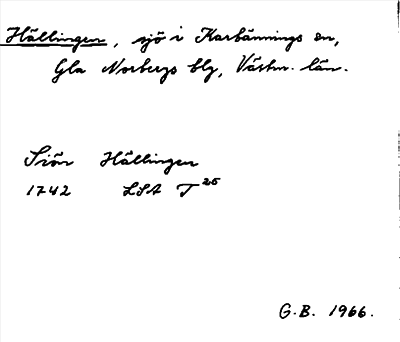 Hällingen, sjö i Karbännings sn,
Gla Norbergs blg, Västm. län.
Siön Hällingen
1742 LSA T 25
G.B. 1966.